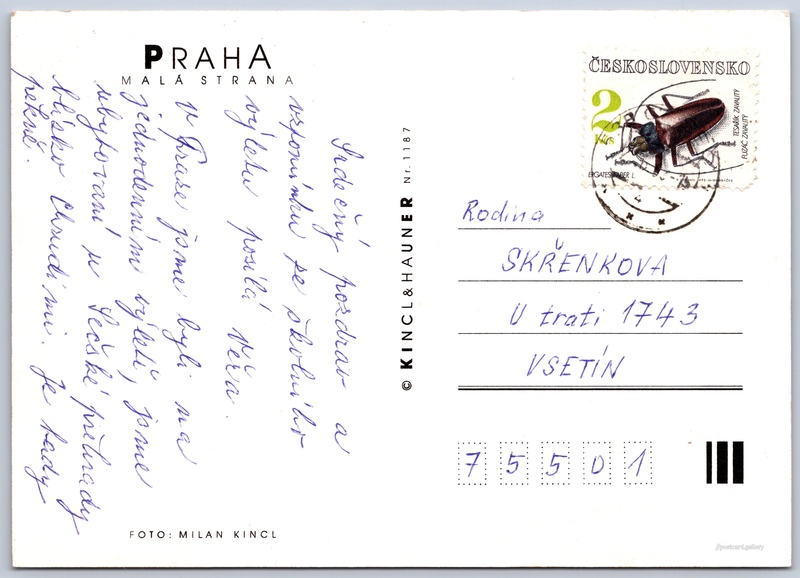 PRAHA
MALÁ STRANA
Srdečný pozdrav a
vzpomínku ze školního
výletu posílá Věra.
V Praze jsme byli na
jednodenním výletě, jsme
ubytovaní u Sečské přehrady
blísko Chrudimi. Je tady
pěkně.
FOTO: MILAN KINCL
© KINCL & HAUNER Nr. 1187
ČESKOSLOVENSKO
2
Kčs
TESAŘÍK ZAVALITÝ
FUZÁČ ZAVALITÝ
ERGATES FABER L.
Rodina
SKŘENKOVA
U trati 1743
VSETÍN
75501
//postcard.gallery